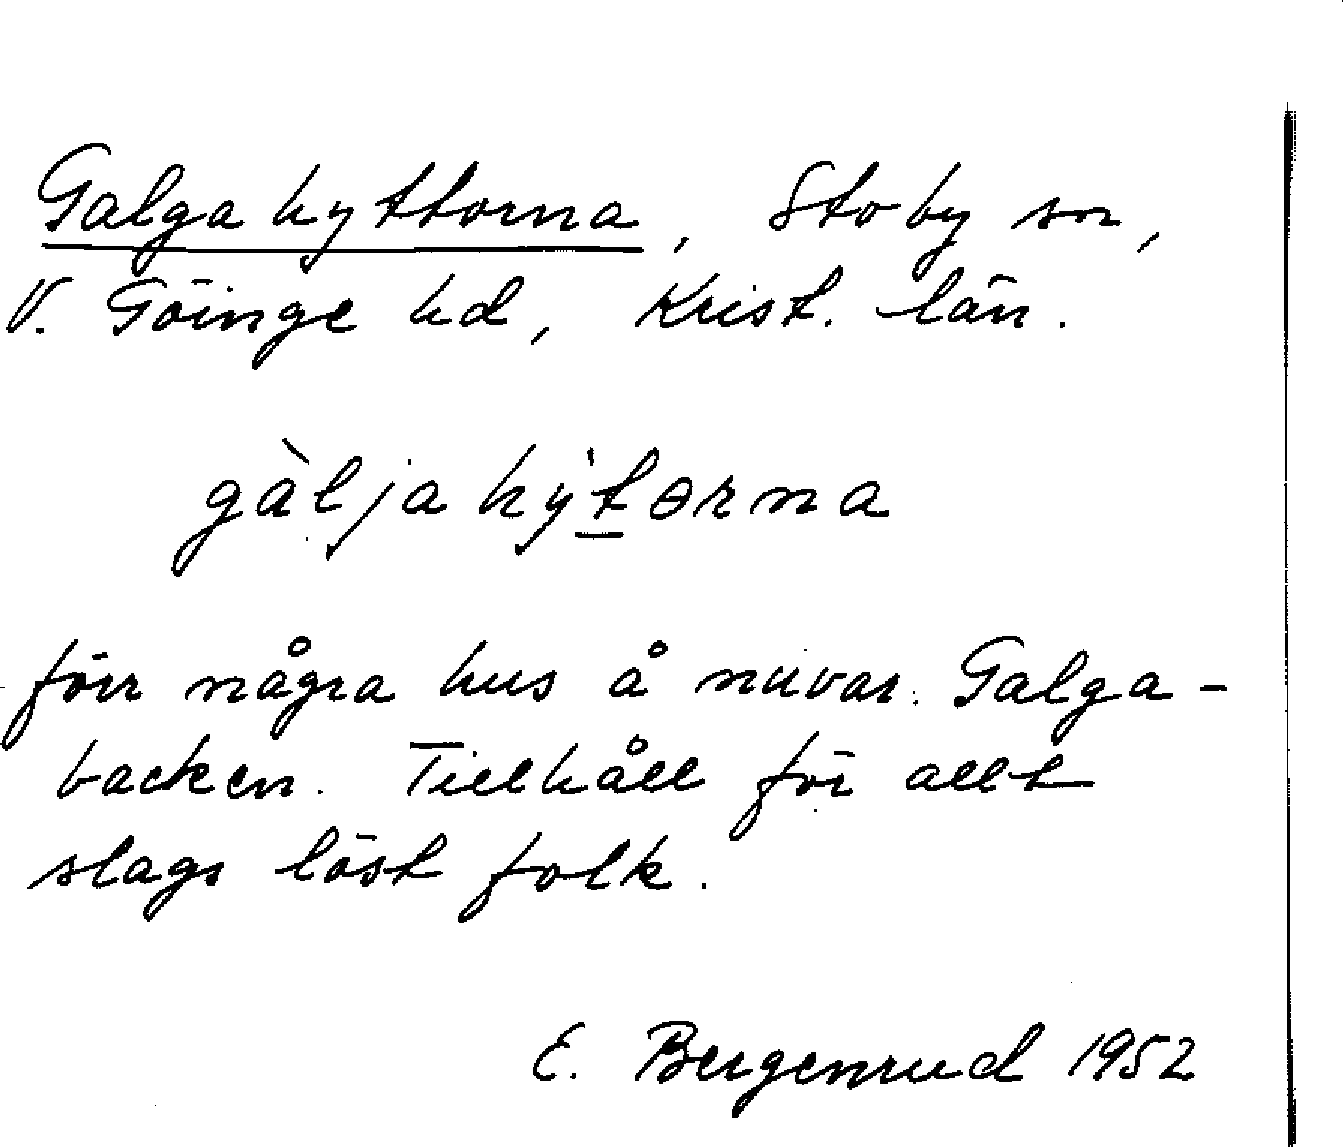 Galgahyttorna, Stoby sn,
V. Göinge hd, Krist. län.
gàljahy̍tǝrna
förr några hus å nuvar. Galga-
backen. Tillhåll för allt
slags löst folk.
E. Bergenrud 1952